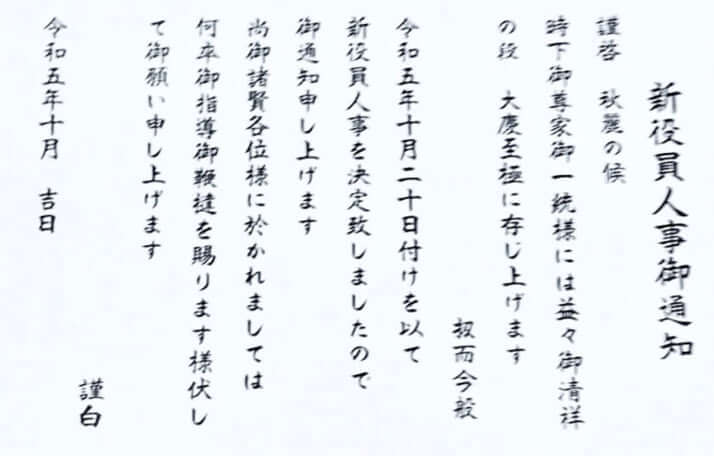 新役員人事御通知
謹啓 秋麗の候
時下御尊家御一統様には益々御清祥
の段 大慶至極に存じ上げます
扨而今般
令和五年十月二十日付けを以て
新役員人事を決定致しましたので
御通知申し上げます
尚御諸賢各位様に於かれましては
何卒御指導御鞭撻を賜ります様伏し
て御願い申し上げます
謹白
令和五年十月 吉日